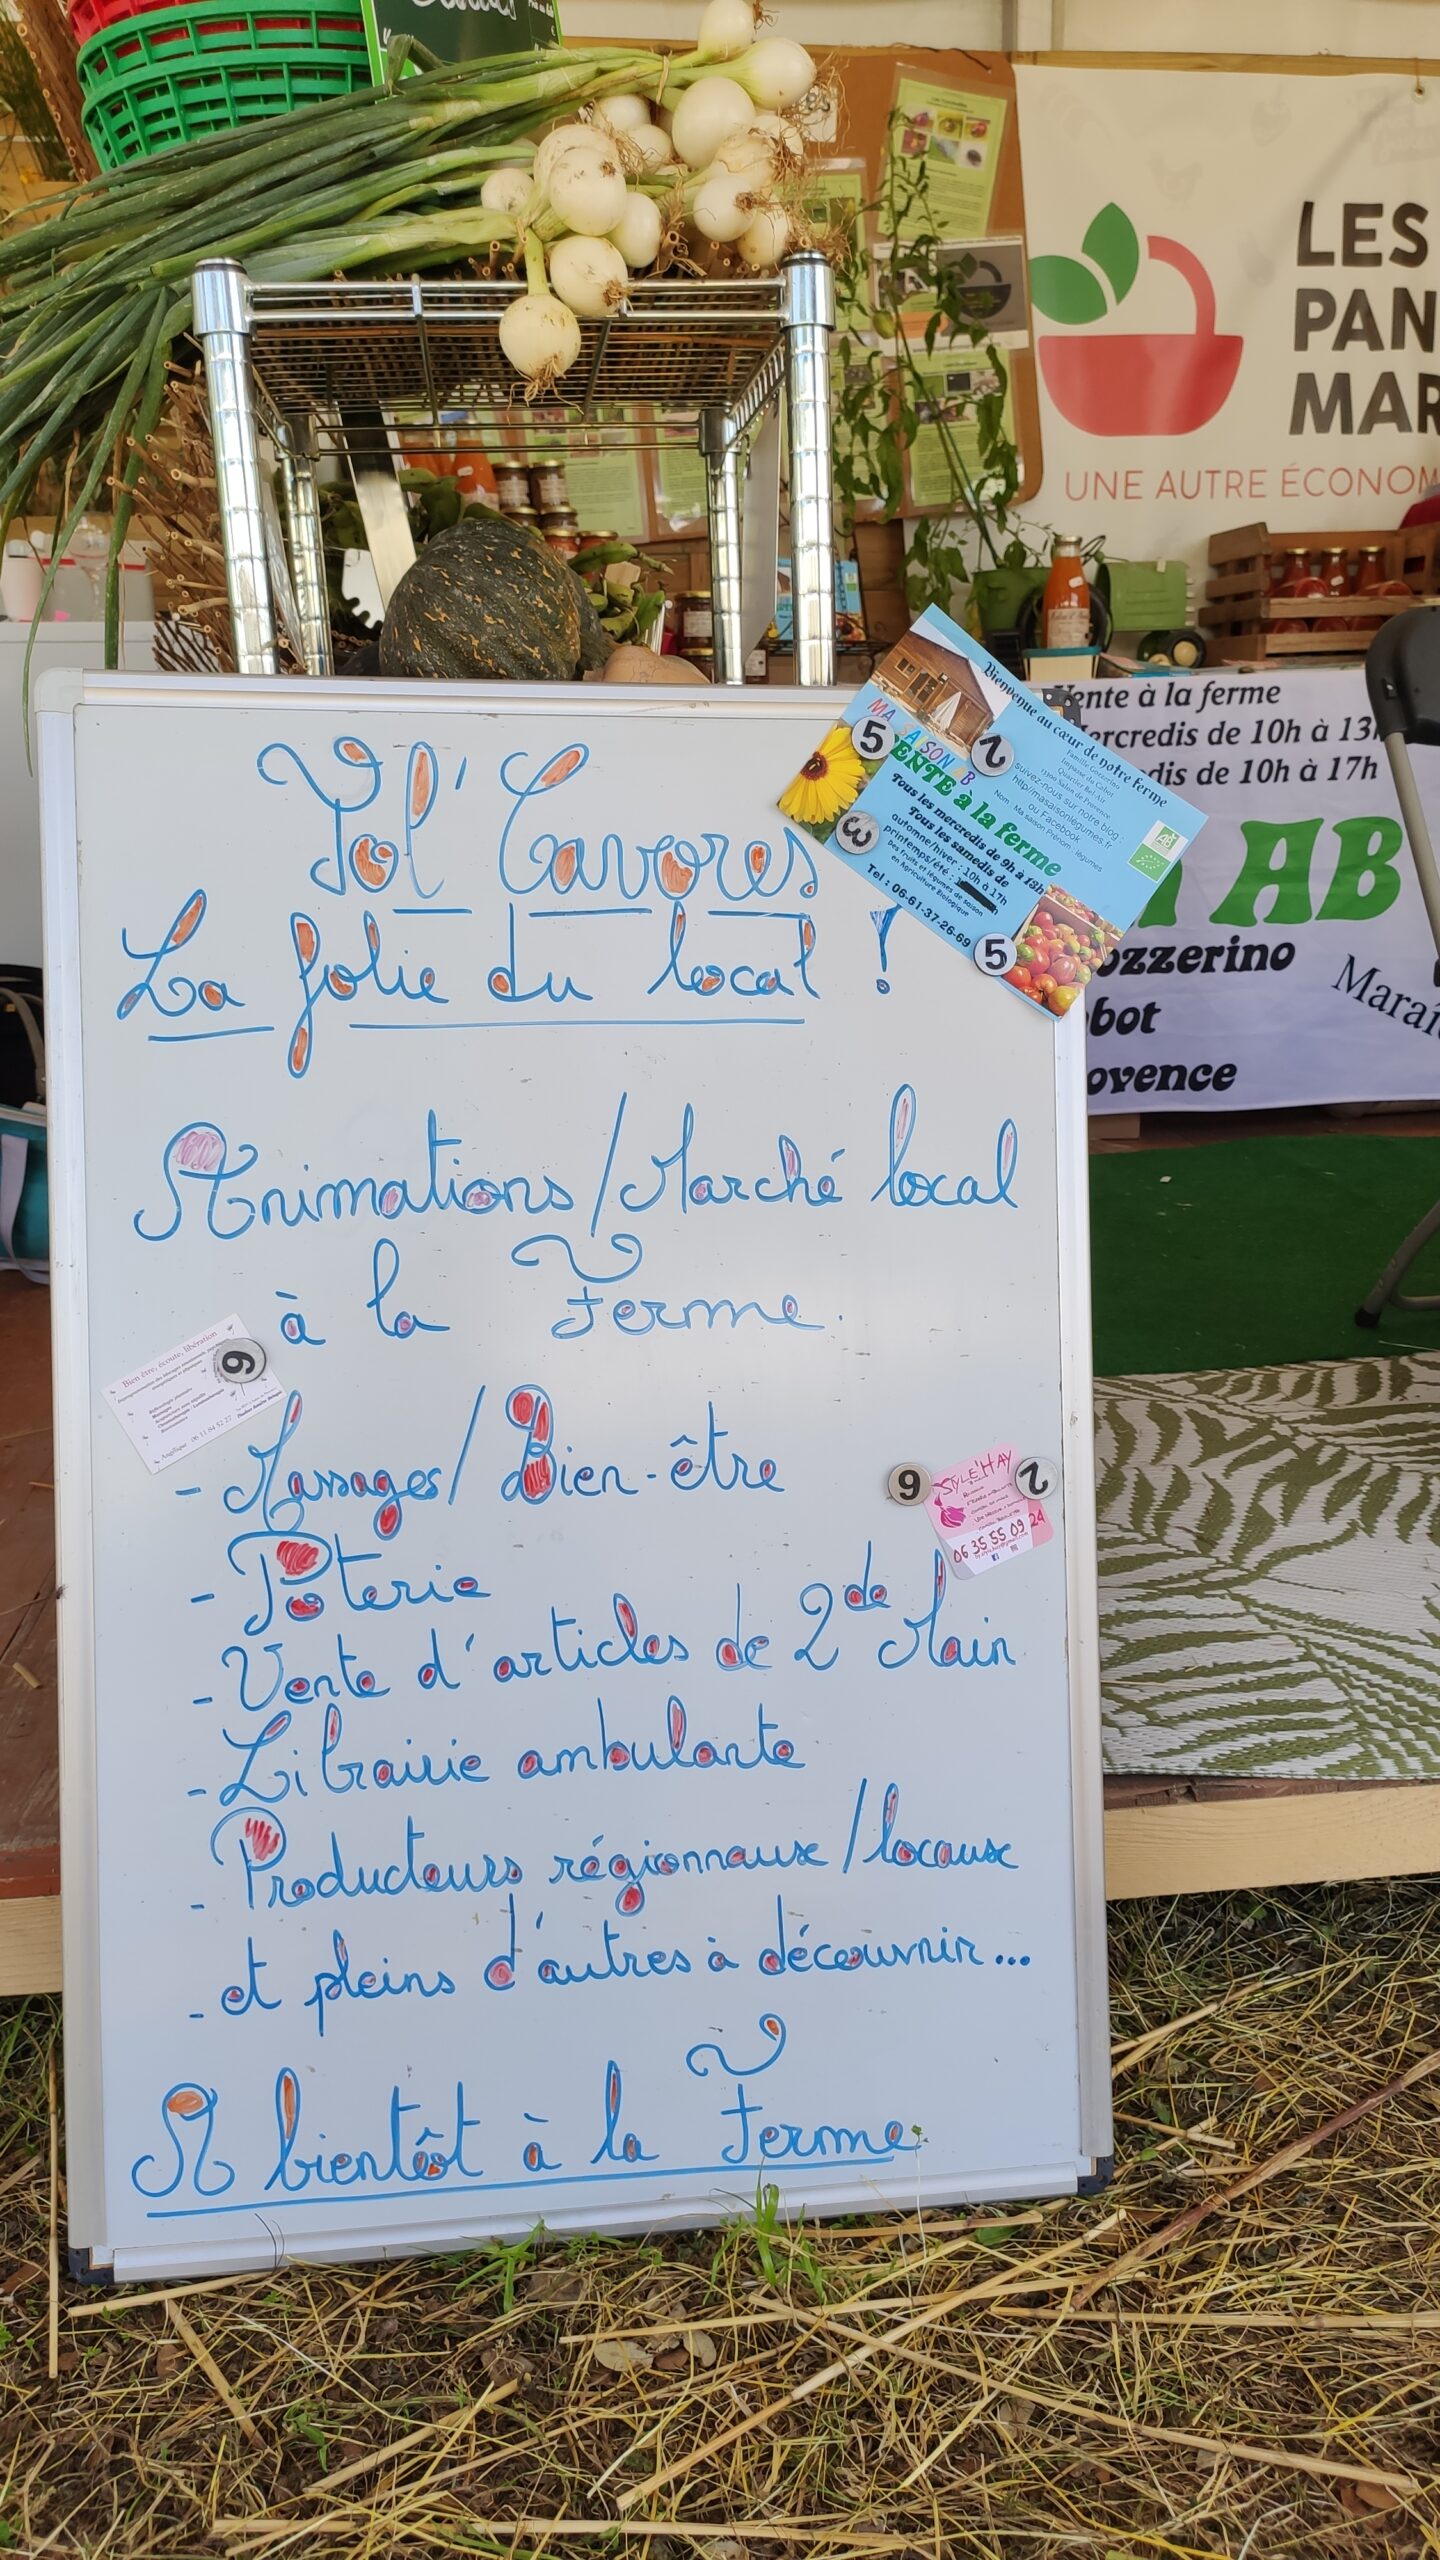 LES
PAN
MAR
UNE AUTRE ÉCONOM
Vente à la ferme
Mercredis de 10h à 13h
dis de 10h à 17h
AB
ozzerino
bot
ovence
Maraî
Bienvenue au cœur de notre ferme
Famille Gozzerino
Impasse du Cabot
Quartier Bel-Air
13300 Salon de Provence
suivez-nous sur notre blog :
http//masaisonlegumes.fr
ou Facebook :
Nom : Ma saison Prénom : légumes
MA SAISON AB
VENTE à la ferme
Tous les mercredis de 9h à 13h
Tous les samedis de
automne/hiver : 10h à 17h
printemps/été :
Des fruits et légumes de saison
en Agriculture Biologique
Tel : 06-61-37-26-69
AB
5
2
3
5
Vol' Cavores
La folie du local !
Animations / Marché local
à la Ferme.
Bien être, écoute, libération
Angélique 06 11 84 52 27
6
- Massages / Bien-être
- Poterie
- Vente d'articles de 2de Main
- Librairie ambulante
- Producteurs régionnaux / locaux
- et pleins d'autres à découvrir...
A bientôt à la Ferme
6
2
STYLE'HAY
06 35 55 09 24